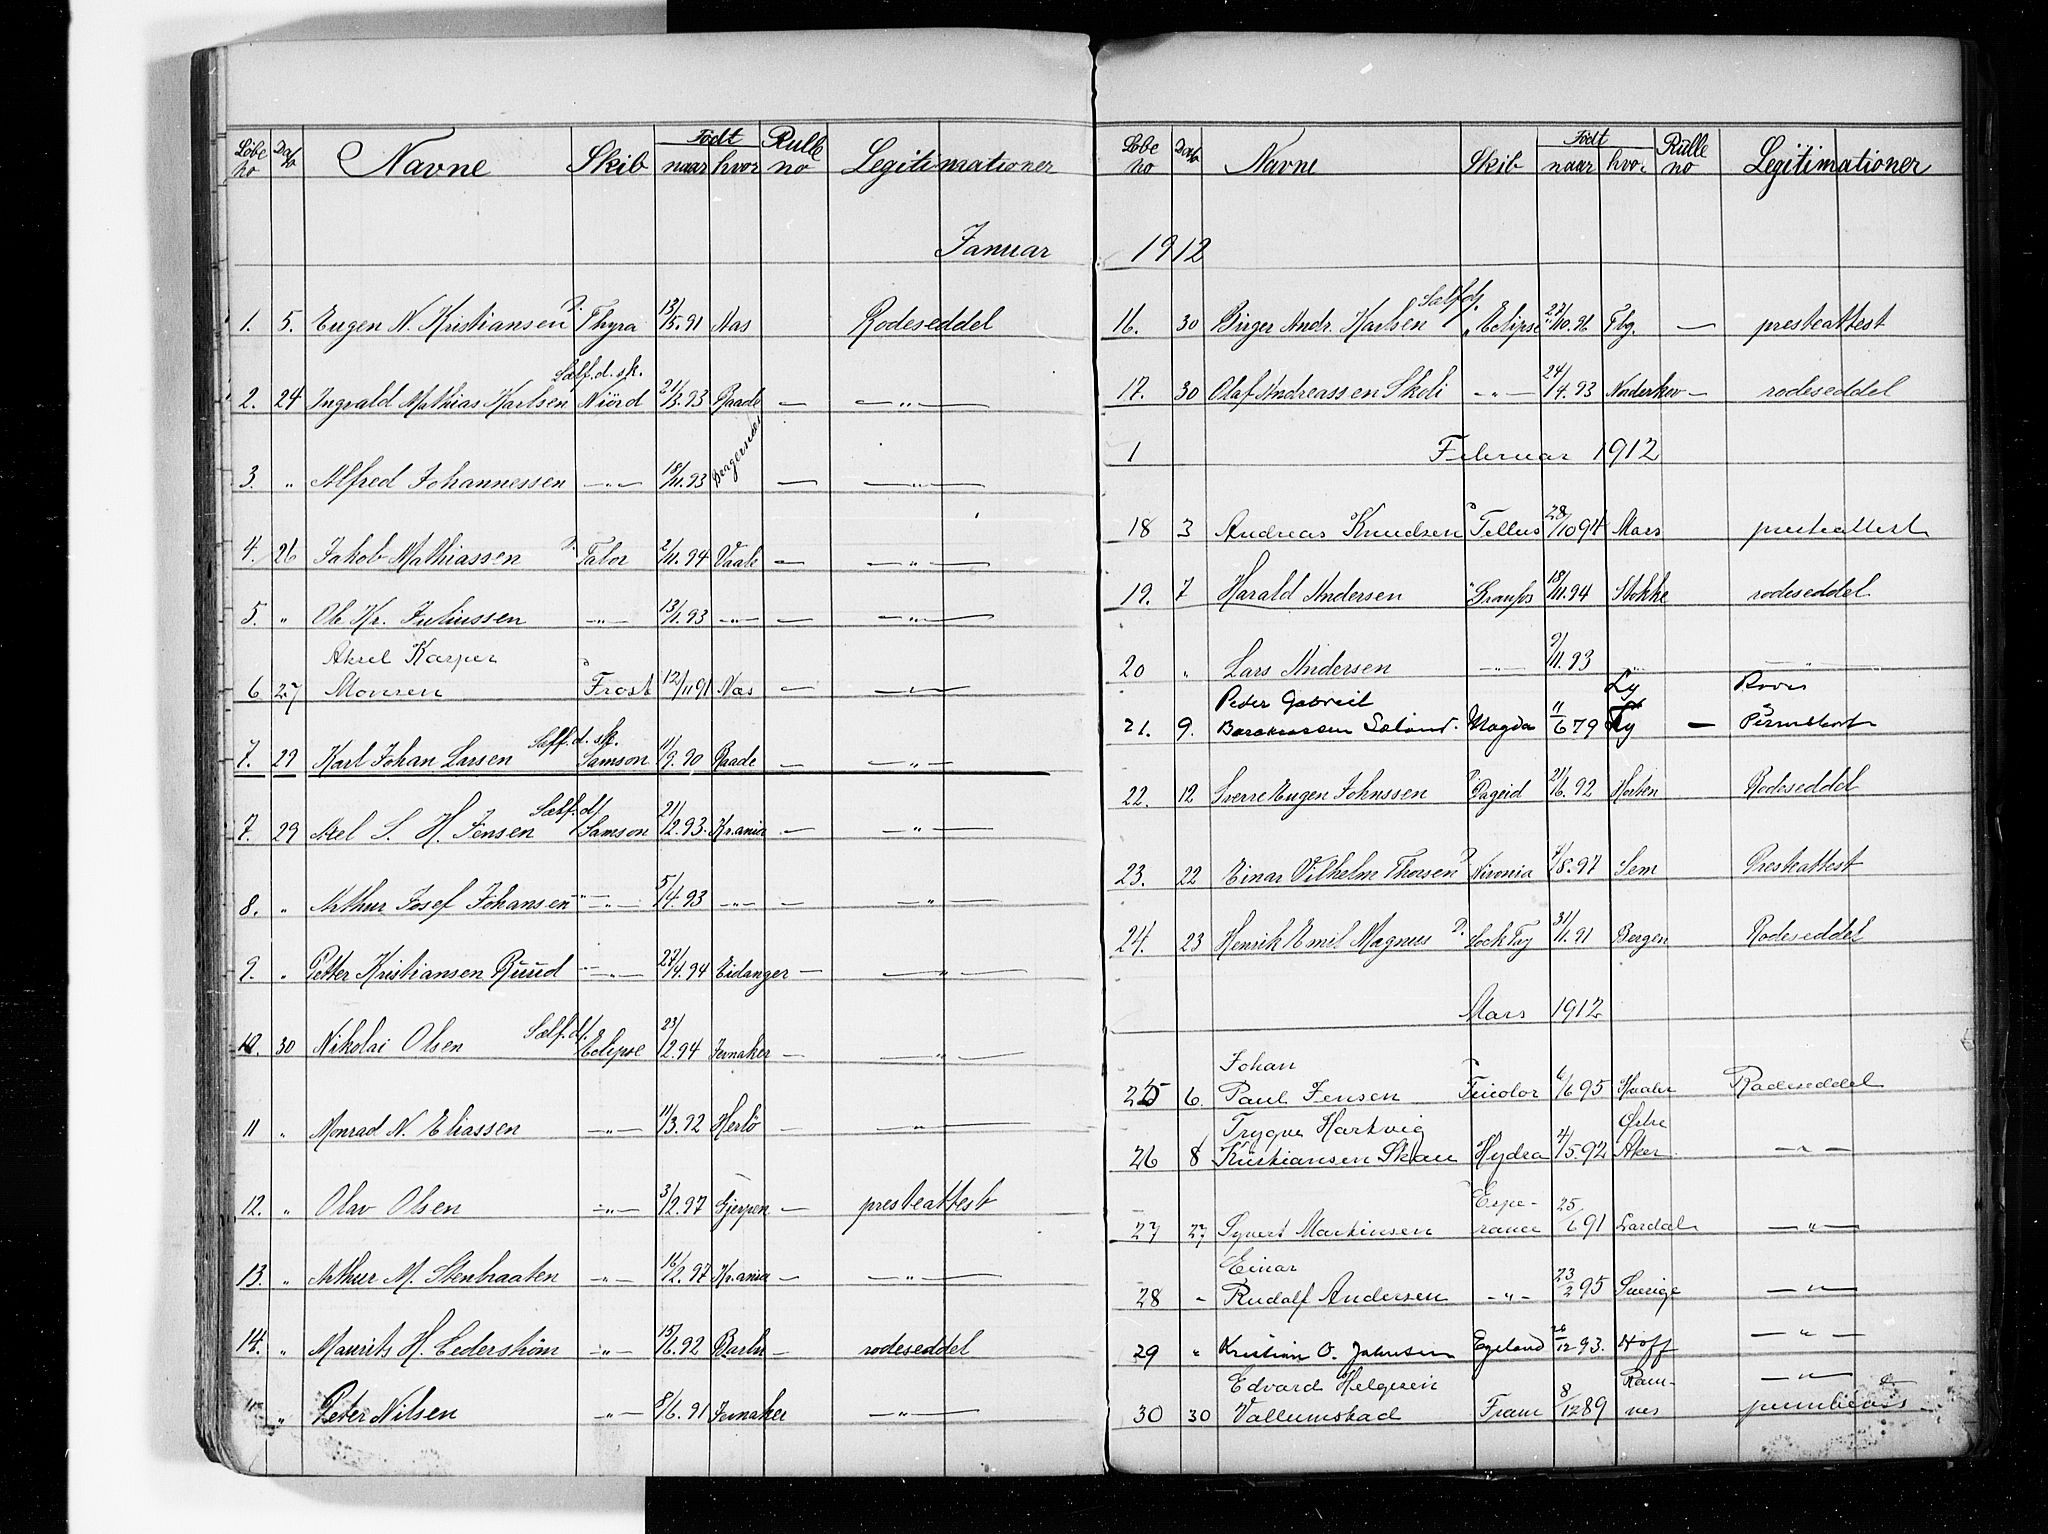 Løbe no Dato Navne Skib Født naar hvor Rulle no Legitimationer
Januar
1. 5. Eugen N. Kristiansen D. Thyra 13/5.91 Aas Rodeseddel
Sælf.d.sk.
2. 24 Ingvald Mathias Karlsen Niörd 21/3.93 Raade — — „ —
3. „ Alfred Johannessen — „ — 18/11.93 Bragernes — — „ —
4. 26 Jakob Mathiassen D. Tabor 2/11.94 Vaale — — „ —
5. „ Ole Kr. Juliussen — „ — 13/1.93 — „ — — — „ —
Aksel Kasper
6 27 Monsen D Frost 12/11 91 Nas — — „ —
Sælf.d.sk.
7. 29 Karl Johan Larsen Samson 11/9.90 Raade — — „ —
Sælf.d/
7. 29 Axel S. H. Jensen Samson 21/12.93. Kr.ania — — „ —
8. „ Arthur Josef Johansen — „ — 5/4.93 — „ — — — „ —
9. „ Petter Kristiansen Ruud — „ — 27/4.94 Eidanger — — „ —
Sælf.d/.
10. 30 Nikolai Olsen Eclipse 23/2.94 Jevnaker — — „ —
11 „ Monrad N. Eliassen — „ — 11/3.92 Herlö — — „ —
12. „ Olav Olsen — „ — 3/2.97 Gjerpen — presteattest
13. „ Arthur M. Stenbraaten — „ — 16/2.97 Kr.ania — — „ —
14. „ Maurits H. Cederstrøm — „ — 15/6.92 Berlin — rodeseddel
15 „ Peter Nilsen — „ — 8/6.91 Jevnaker — „ —
Løbe no Dato Navne Skib Født naar hvor Rulle no Legitimationer
1912
Sælfd/.
16. 30 Birger Andr. Karlsen „Eclipse 27/10.96 Fbg. — presteattest
17. 30 Olaf Andreassen Skoli — „ — 24/4.93 Norderhov — rodeseddel
1 Februar 1912
18 3 Andreas Knudsen D Tellus 28/10 94 Moss presteattest
19. 7 Harald Andersen „ Granfos 18/11.94 Stokke rodeseddel
20 „ Lars Andersen — „ — 9/11.93 „ — „ —
Peder Gabriel Ly
21. 9. Magda 11/6 79 —
22. 12 Sverre Eugen Johnssen D. Dageid 21/6.92 Horten Rodeseddel
23. 22 Einar Vilhelm Thorsen D. 8.97 Sem Presteattest
24. 23 Henrik Emil Magnus D. Sock Tay 31/1.91 Bergen Rodeseddel
Mars 1912
Johan
25 6. Paul Jensen D Tricolor 6/6 95 Hvaler Rodeseddel
Trygve Hartvig Østre
26 8 Kristiansen Skau Hydra 4/5.92 Aker — „ —
Espe- 25
27 27 Syvert Martinsen rance /6 91 Lardal — „ —
Einar
28 „ Rudolf Andersen — „ — 23/2 95 Sverige — „ —
29 „ Kristian O. Johnsen Egeland 26/12 93. Hoff — „ —
Edvard Helgesen Ram- — „ —
30 30 Vallumstad Fram 8/12 89 nes